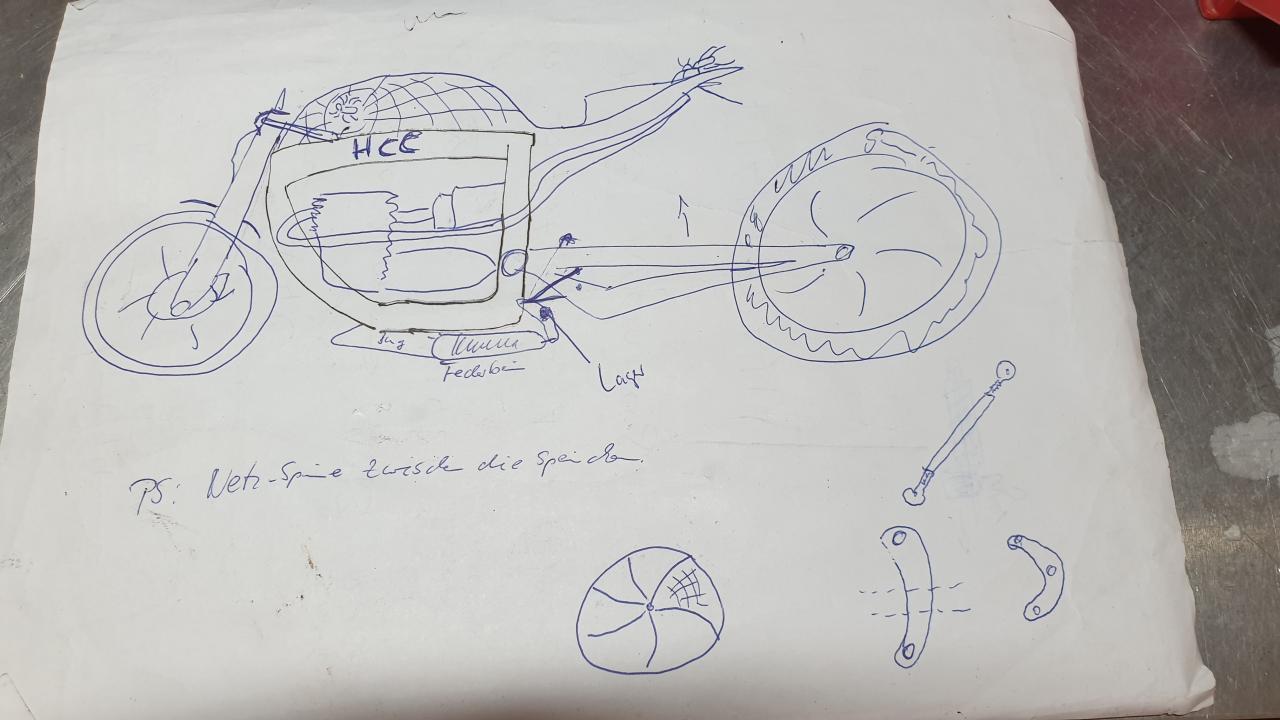 HCC
Federbein
Lager
PS: Netz-Spinne zwischen die Speichen.